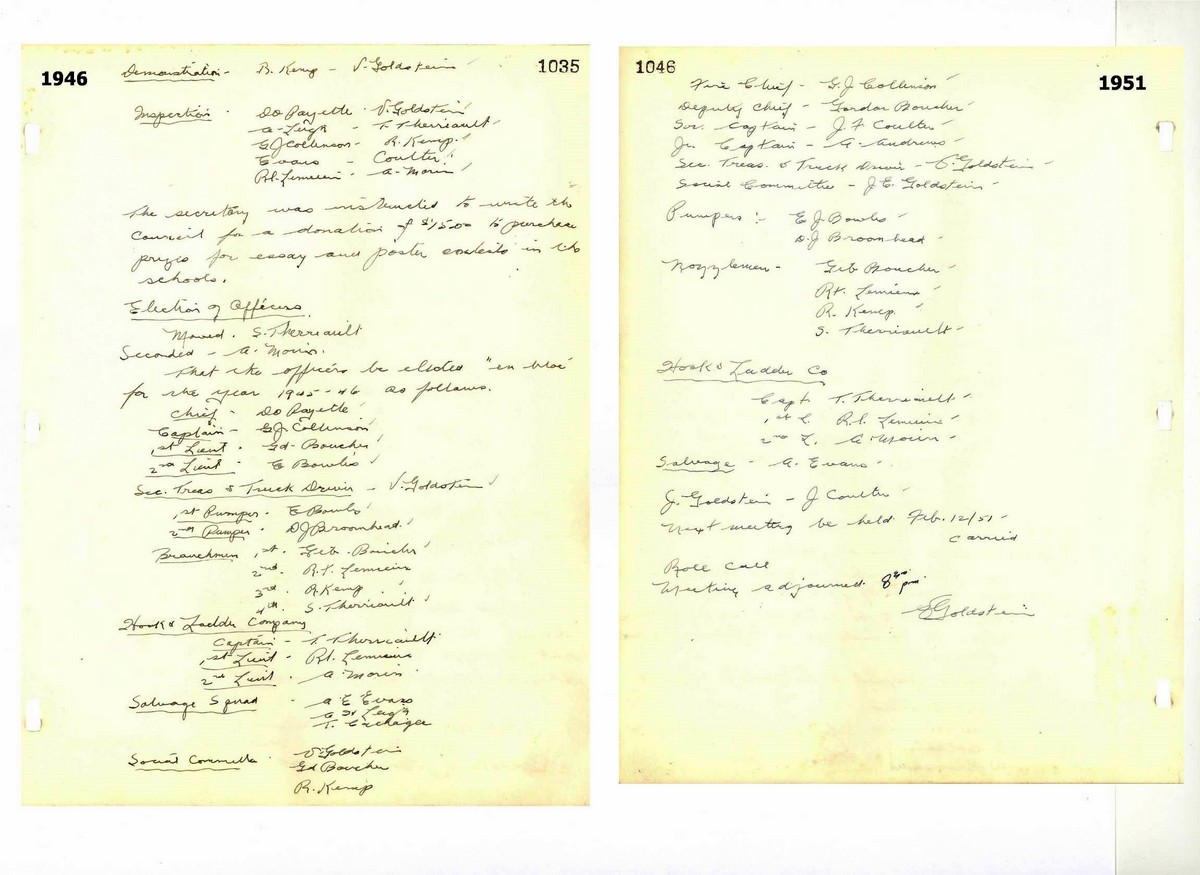 1946
1035
Demonstration - R. Kemp - V. Goldstein
Inspection - Do Payette - V. Goldstein
A. Leigh - T. Therriault
G J Collinson - R. Kemp
Evans - Coulter
Rt. Lemieux - A. Morin
The secretary was instructed to write the
Council for a donation of $15.00 to purchase
prizes for essay and poster contests in the
schools.
Election of Officers
Moved. S. Therriault
Seconded - A. Morin.
That the officers be elected "en bloc"
for the year 1945-46 as follows.
Chief - Do Payette
Captain - G J Collinson
1st Lieut - Gd. Boucher
2nd Lieut - E Bowles
Sec. Treas & Truck Driver - V. Goldstein
1st Pumper - E Bowles
2nd Pumper - D J Broomhead.
Branchmen 1st. Geb. Boucher
2nd. R.t. Lemieux
3rd. R Kemp
4th. S. Therriault
Hook & Ladder Company
Captain - T. Therriault
1st Lieut - Rt. Lemieux
2nd Lieut - A. Morin
Salvage Squad - A E Evans
Leigh
T.
Social Committee - V. Goldstein
Gd Boucher
R. Kemp
1046
1951
Fire Chief - G. J Collinson
Deputy Chief - Gordon Boucher
Snr. Captain - J. F Coulter
Jr. Captain - A. Andrews
Sec. Treas. & Truck Driver - V. Goldstein -
Social Committee - J E. Goldstein -
Pumpers :- E J. Bowles
D. J Broomhead -
Nozzlemen - Geb Boucher -
Rt. Lemieux -
R. Kemp -
S. Therriault -
Hook & Ladder Co
Capt T. Therriault -
1st L. R.t. Lemieux -
2nd L. A Morin -
Salvage - A. Evans -
J. Goldstein - J Coulter
Next meeting be held Feb. 12/51 -
Carried
Role Call
Meeting adjourned 8 pm
Goldstein